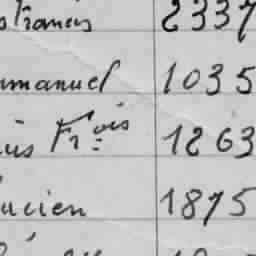 s Francis 2337
mmanuel 1035
ius Frois 1263
ucien 1875